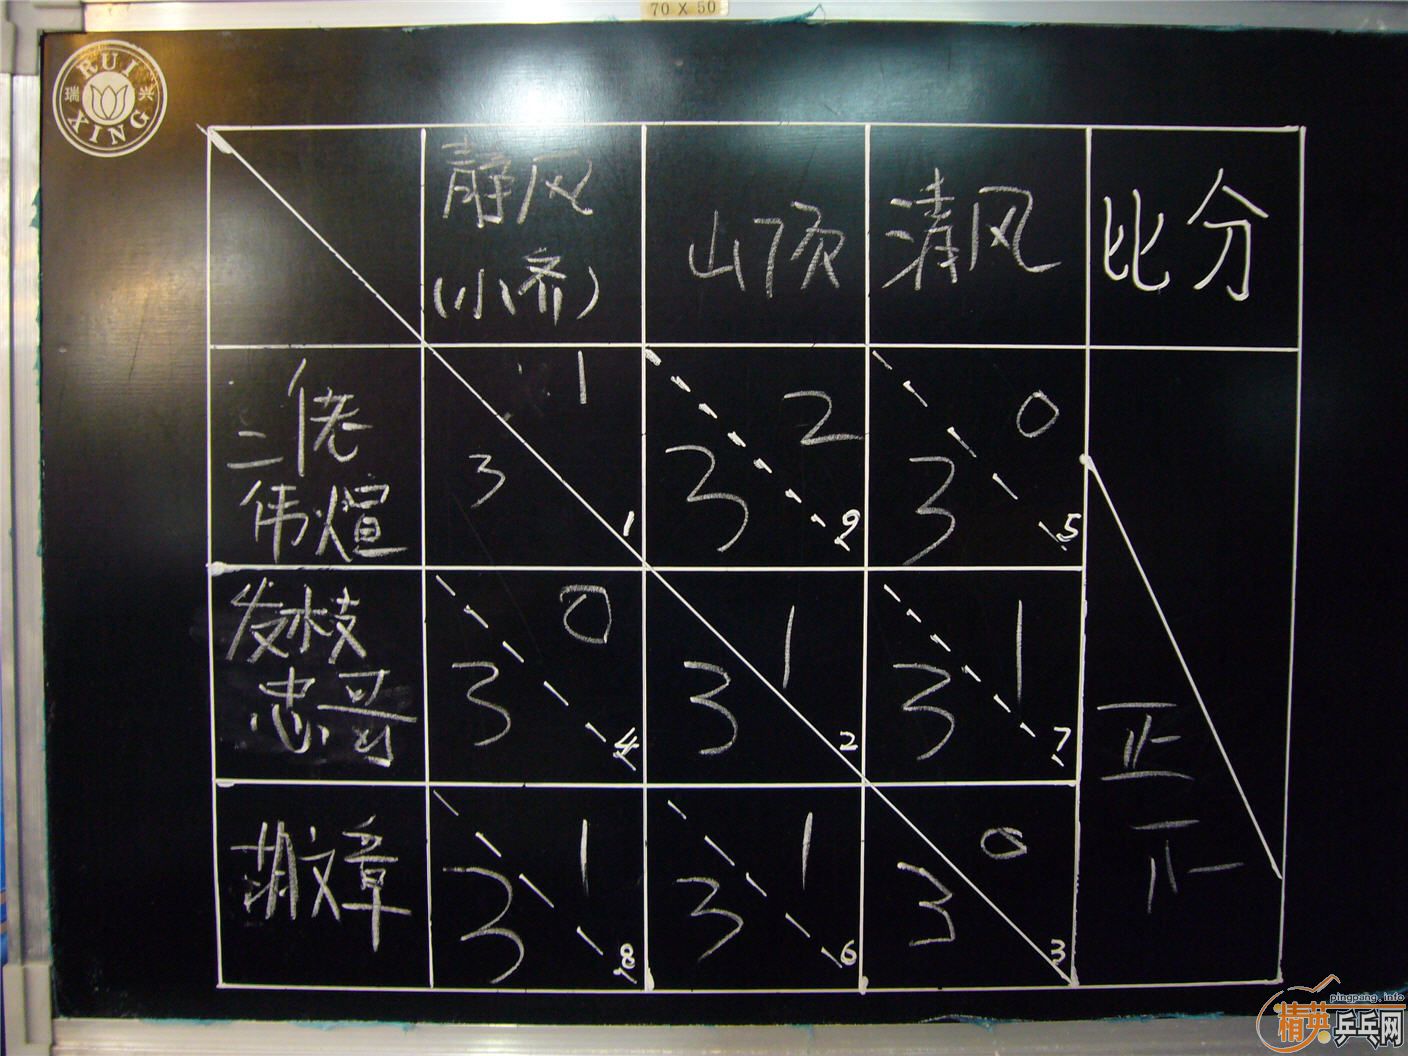 70 X 50
RUI
瑞 兴
XING
静风
(小齐)
山顶
清风
比分
二佬
伟煊
1
3
1
2
3
9
0
3
5
发枝
忠哥
0
3
4
1
3
2
1
3
7
正
胡文章
1
3
8
1
3
6
0
3
3
pingpang.info
精英乒乓网